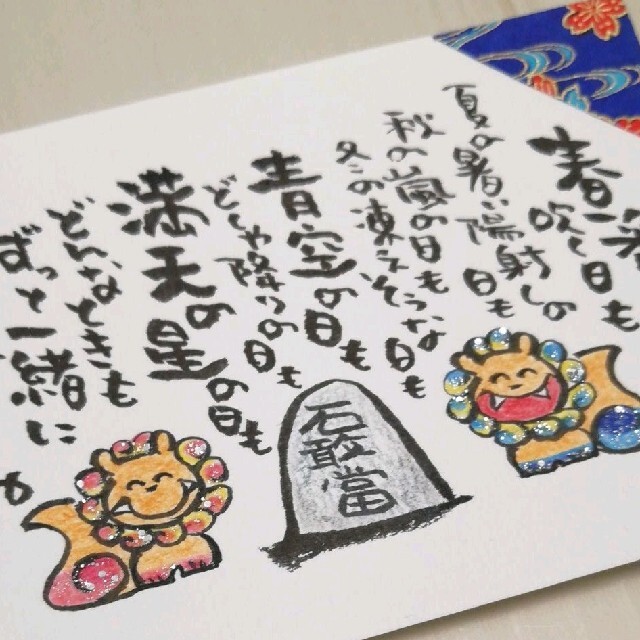 春一番
吹く日も
夏の暑い陽射しの
日も
秋の嵐の日も
冬の凍えそうな日も
青空の日も
どしゃ降りの日も
満天の星の日も
どんなときも
ずっと一緒に
石敢當